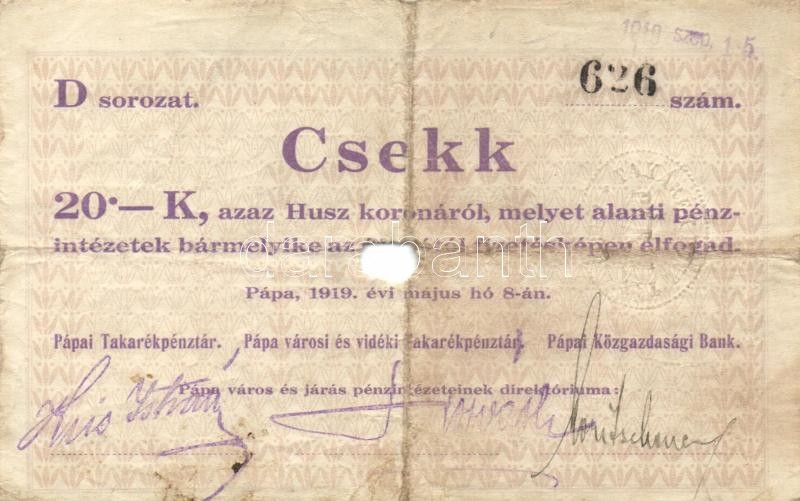 1919 szep. 15.
D sorozat. 626 szám.
Csekk
20·— K, azaz Husz koronáról, melyet alanti pénz-
intézetek bármelyike az fizetésképen elfogad.
darabanth
Pápa, 1919. évi május hó 8-án.
Pápai Takarékpénztár. Pápa városi és vidéki Takarékpénztár. Pápai Közgazdasági Bank.
Pápa város és járás pénzintézeteinek direktóriuma:
Kis István